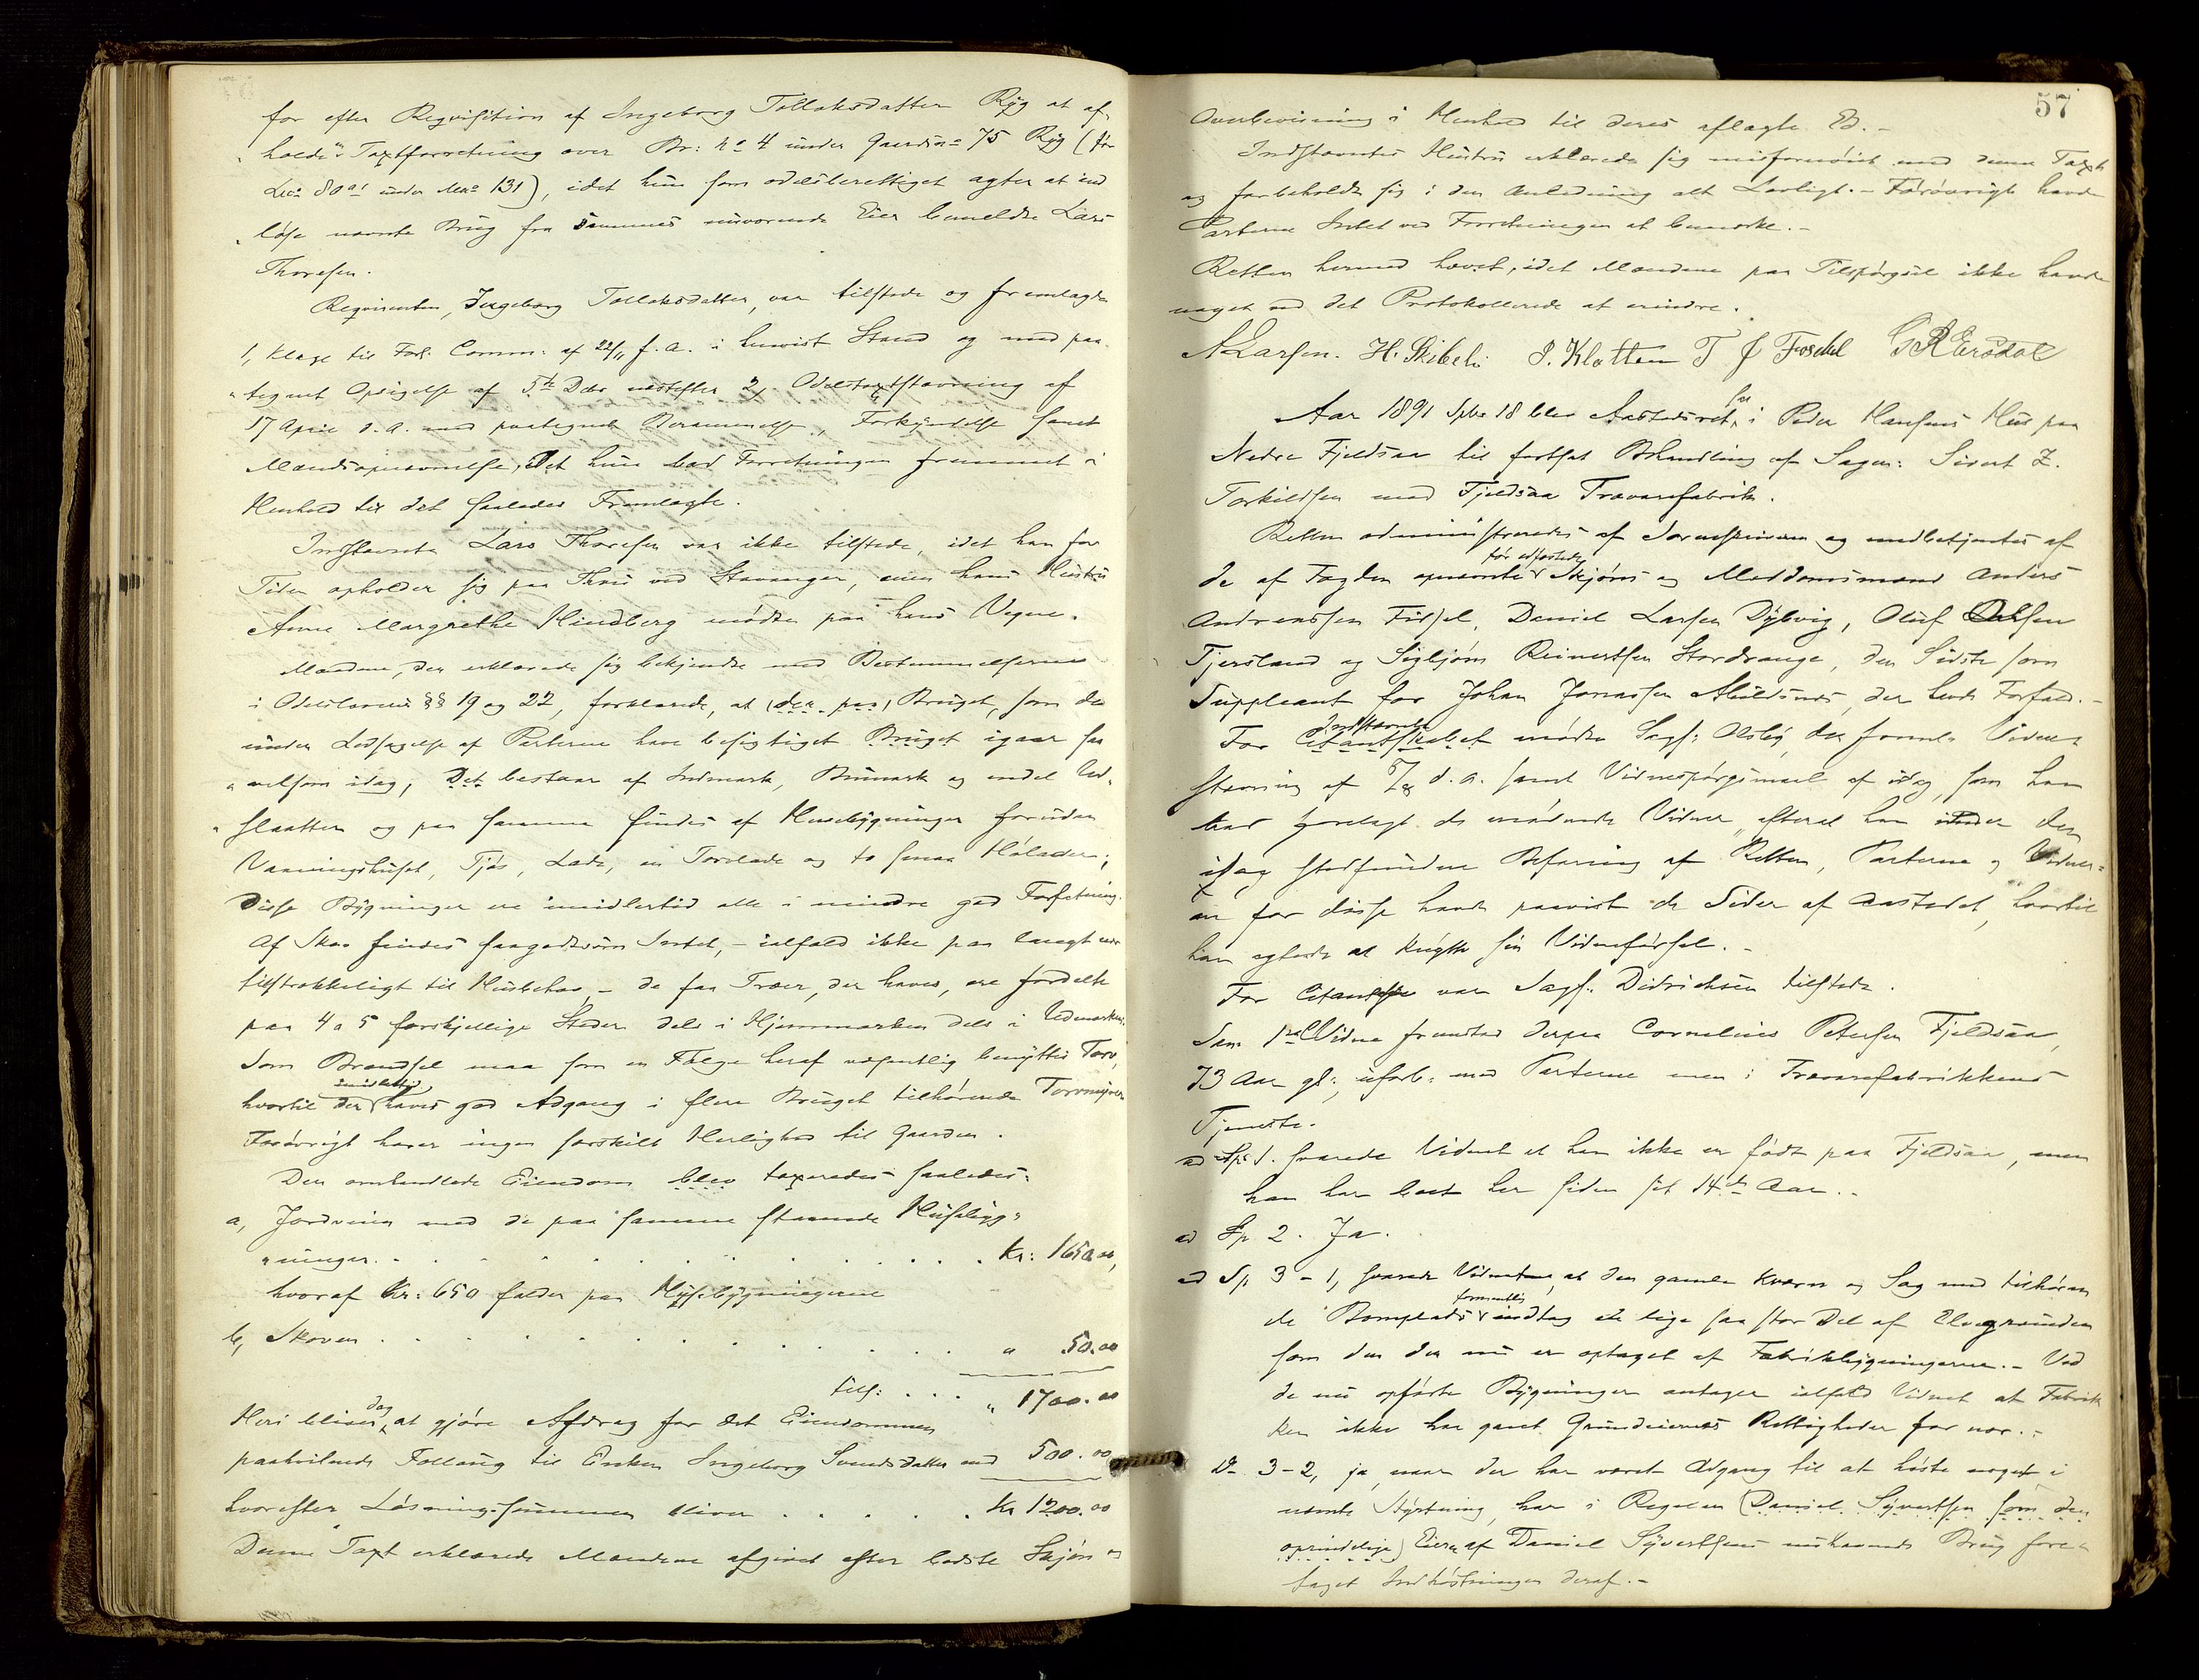 for efter Reqvisition af Ingeborg Tollaksdatter Ryg at af„
„holde Taxtforretning over Br: No 4 under Gaardsno 75 Ryg (før
Lno 80a1 under Mno 131), idet hun som odelsberettiget agter at ind
„løse nævnte Brug fra sammes nuværende Eier bemeldte Lars
Thoresen.
Reqvirenten, Ingeborg Tollaksdatter, var tilstede og fremlagde
1, Klage til Forl. Comm: af 22/11 f. A. i henvist Stand og med paa„
„tegnet Opsigelse af 5te Dcbr næstefter 2, Odelstaxtstævning af
17 April d. A. med paategnet Berammelse, Forkyndelse samt
Mændsopnævnelse, Idet hun bad Forretningen fremmet i
Henhold til det saaledes Fremlagte.
Indstævnte Lars Thoresen var ikke tilstede, idet han for
Tiden opholder sig paa Thou ved Stavanger, men hans Hustru
Anne Margrethe Hindberg mødte paa hans Vegne.
Mændene, der erklærede sig bekjendte med Bestemmelserne
i Odelslovens §§ 19 og 22, forklarede, at (der paa) Bruget, som de
under Ledsagelse af Parterne have besigtiget Bruget igaar saa
„velsom idag, Det bestaar af Indmark, Bumark og endel Ud„
„slaatter og paa samme findes af Husebygninger foruden
Vaaningshuset, Fjøs, Lade, en Torvlade og to smaa Hølader;
disse Bygninger ere imidlertid alle i mindre god Forfatning.
Af Skov findes saagodtsom Intet, – ialfald ikke paa langt nær
tilstrækkeligt til Husbehov – de faa Træer, der haves, ere fordelte
paa 4 a 5 forskjellige Steder dels i Hjemmarken dels i Udmarken.
Som Brændsel maa som en Følge heraf væsentlig benyttes Torv,
imidlertid
hvortil der haves god Adgang i flere Bruget tilhørende Torvmyrer
Forøvrigt haver ingen særskilt Herlighed til Gaarden.
Den omhandlede Eiendom blev taxeredes saaledes:
a, Jordveien med de paa samme staaende Husebyg„
„ninger . . . . . . . . . . . Kr: 1650.00,
hvoraf Kr: 650 falder paa Husebygningerne
b, Skoven . . . . . . . . . . „ 50.00
tils: . . . „ 1700.00
dog
Heri bliver at gjøre Afdrag for det Eiendommen
paahvilende Follaug til Enken Ingeborg Svendsdatter med 500.00
hvorefter Løsningssummen bliver . . . . . Kr 1200.00
Denne Taxt erklærede Mændene afgivet efter bedste Skjøn og
57
Overbevisning i Henhold til deres aflagte Ed. –
Indstævntes Hustru erklærede sig misfornøiet med denne Taxt
og forbeholdt sig i den Anledning alt Lovligt. – Forøvrigt havde
Parterne Intet ved Forretningen at bemærke. –
Retten hermed hævet, idet Mændene paa Tilspørgsel ikke havde
noget ved det Protokollerede at erindre.
A Larsen. H. Skibeli P. Klotten T J Fosedal G R Eersdal
sat
Aar 1891 Spbr 18 blev Aastedsret i Peder Hansens Hus paa
Nedre Fjeldsaa til fortsat Behandling af Sagen: Sivert Z.
Torkildsen mod Fjeldsaa Trævarefabrik.
Retten administreredes af Sorenskriveren og medbetjentes af
før edfæstede
de af Fogden opnævnte Skjøns og Meddomsmænd Anders
Andreassen Fidsel, Daniel Larsen Dybvig, Oluf Olsen
Tjersland og Sigbjørn Reinertsen Stordrange, den Sidste som
Suppleant for Johan Jonassen Aluldsnes, der havde Forfald. –
Indstævnte
For Citantskabet mødte Sagf: Alsby, der freml. Vidne„
stævning af 5/8 d. A. samt Vidnespørgsmaal af idag, som han
har forelagt de mødende Vidner, efterat han under den
idag stedfundne Befaring af Retten, Parterne og Vidner„
ne for disse havde paavist de Sider af Aastedet, hvortil
han agtede at knytte sin Vidneførsel. –
For Citanten var Sagf: Didrichsen tilstede.
Som 1ste Vidne fremstod derpaa Cornelius Petersen Fjeldsaa,
73 Aar gl:, uforb: med Parterne men i Trævarefabrikkens
Tjeneste.
ad Sp: 1. svarede Vidnet at han ikke er født paa Fjeldsaa, men
han har boet her siden sit 14de Aar. –
ad Sp 2. Ja.
ad Sp 3 – 1, svarede Vidnet, at den gamle Kværn og Sag med tilhøren
formentlig
de Bomplads indtog en lige saa stor Del af Elvegrunden
som den der nu er optaget af Fabrikbygningerne. – Ved
de nu opførte Bygninger antager ialfald Vidnet at Fabrik
ken ikke har gaaet Grundeiernes Rettigheder for nær. –
Do 3–2, ja, naar der har været Adgang til at høste noget i
nævnte Styrtning, har i Regelen (Daniel Syvertsen som den
oprindelige) Eieren af Daniel Syvertsens nuhavende Brug fore„
taget Indhøstningen deraf. –